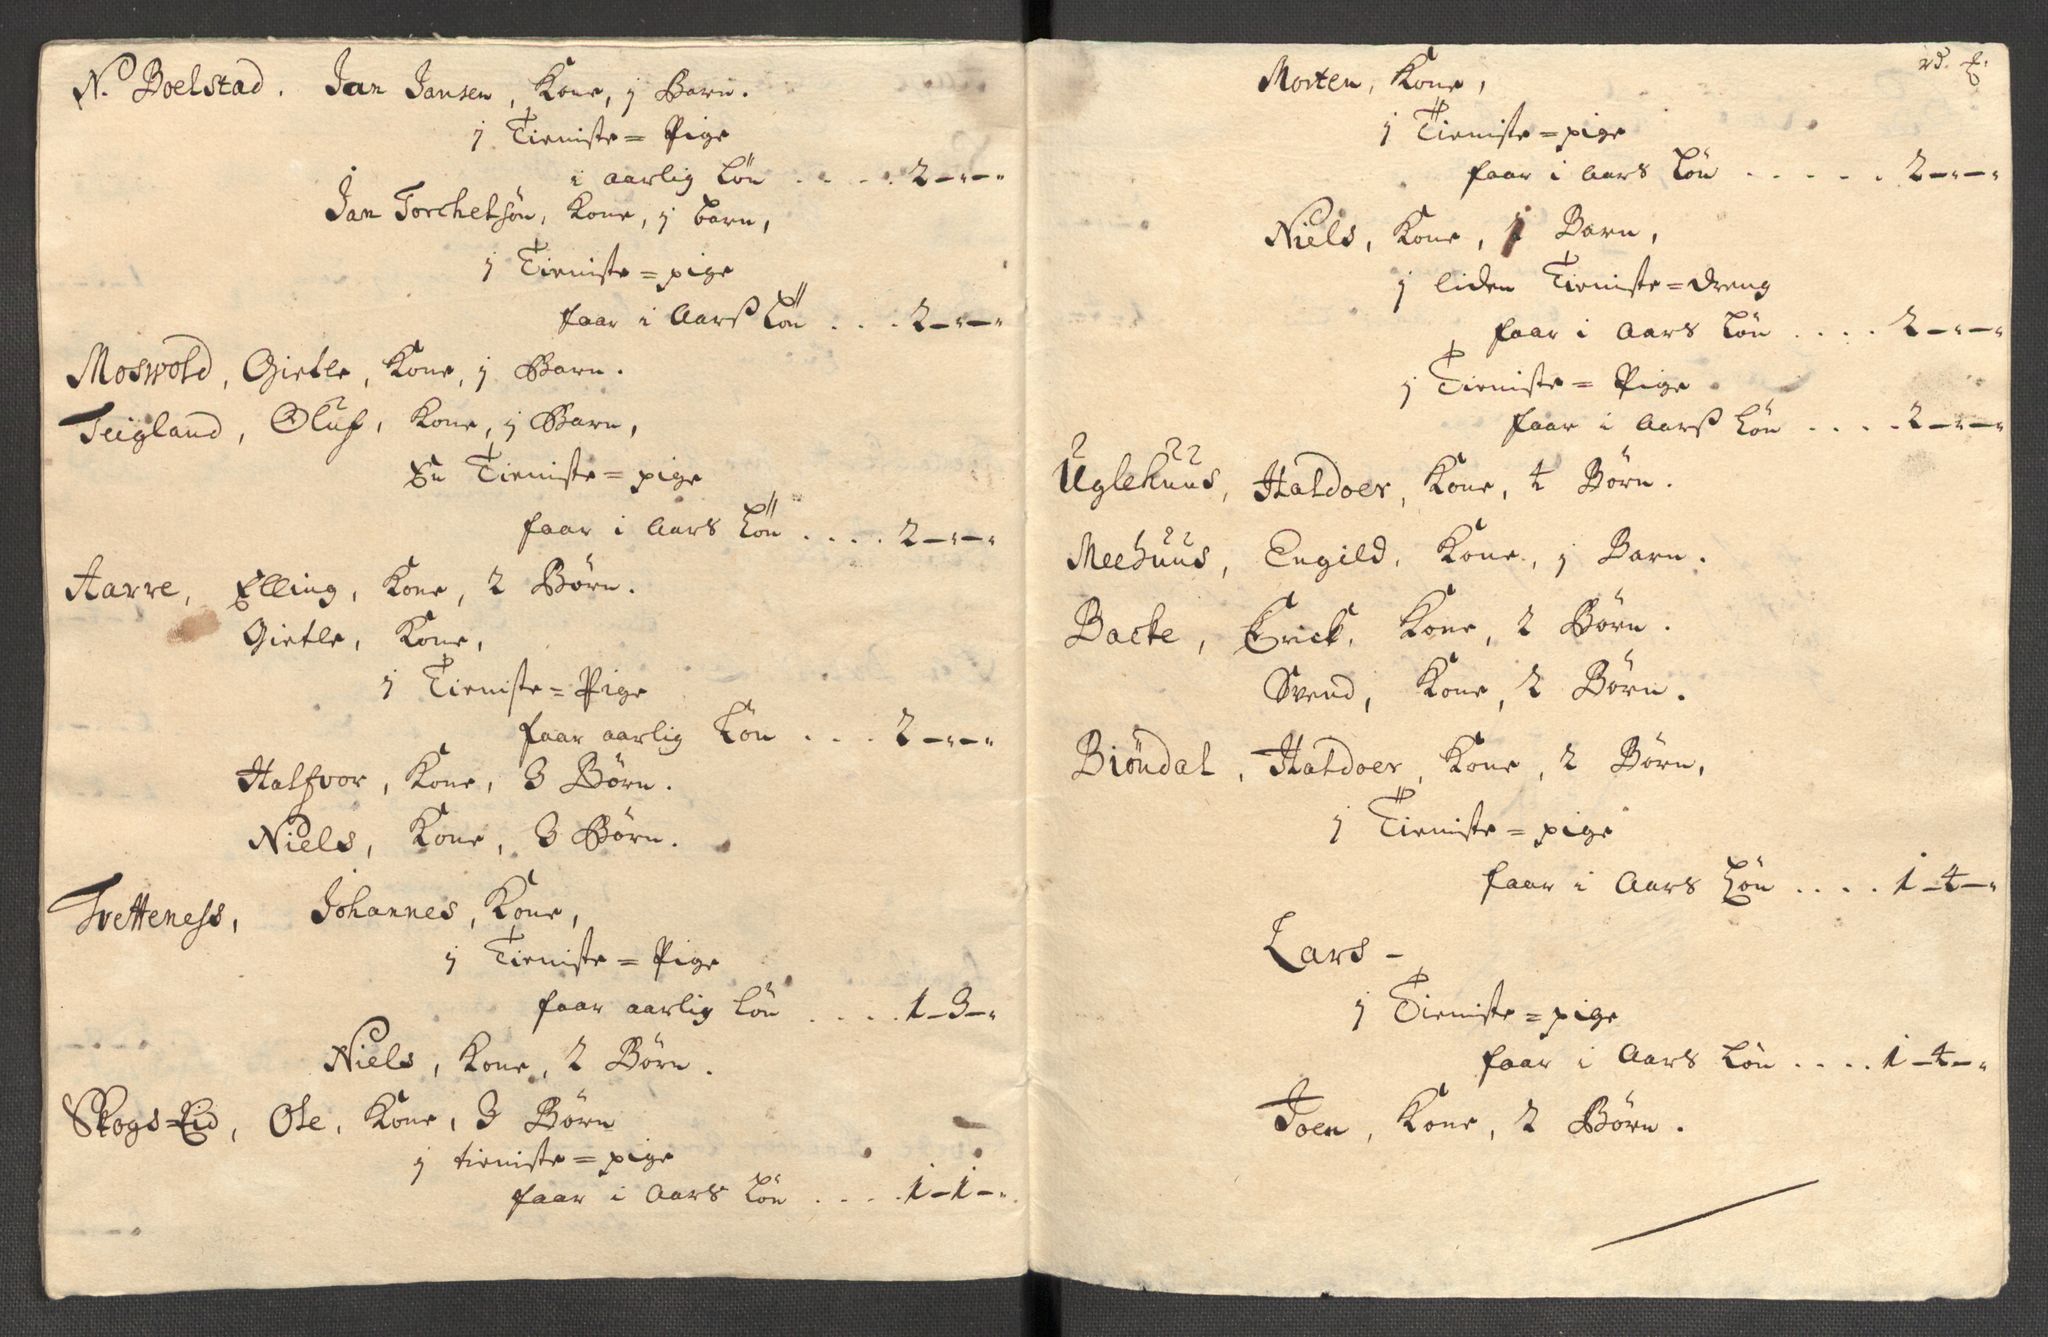 N. Boelstad. Jan Jansen, Kone, j Barn.
j Tieniste=Pige
i aarlig Lön . . . . . 2-"-"
Jan Torchelsön, Kone, j barn,
j Tieniste=pige
faar i Aarß Lön . . . . 2-"-"
Moswold, Gietle, Kone, j Barn.
Teigland, Oluf, Kone, j Barn,
En Tieniste=pige
faar i Aars Lön . . . . 2-"-"
Aarre, Elling, Kone, 2 Börn.
Gietle, Kone,
j Tieniste=Pige
faar aarlig Lön . . . . 2-"-"
Halfvor, Kone, 3 Börn.
Niels, Kone, 3 Börn.
Tvetteness, Johannes, Kone,
j Tieniste=Pige
faar aarlig Lön . . . . 1-3-"
Niels, Kone, 2 Börn.
Skogs=Eid, Ole, Kone, 3 Börn
j tieniste=pige
faar i Aars Lön . . . . 1-1-"
Morten, Kone,
j Tieniste=pige
faar i Aars Lön . . . . . 2-"-"
Niels, Kone, 1 Barn,
j liden Tieniste=dreng
faar i Aars Lön . . . . 2-"-"
j Tieniste=Pige
faar i Aarß Lön . . . . 2-"-"
Uglehuus, Haldoer, Kone, 4 Börn.
Meehuus, Engild, Kone, j Barn.
Backe, Erick, Kone, 2 Börn.
Svend, Kone, 2 Börn.
Biöndal, Haldoer, Kone, 2 Börn,
j Tieniste=pige
faar i Aars Lön . . . . 1-4-"
Lars -
j Tieniste=pige
faar i Aars Lön . . . . 1-4-"
Joen, Kone, 2 Börn.